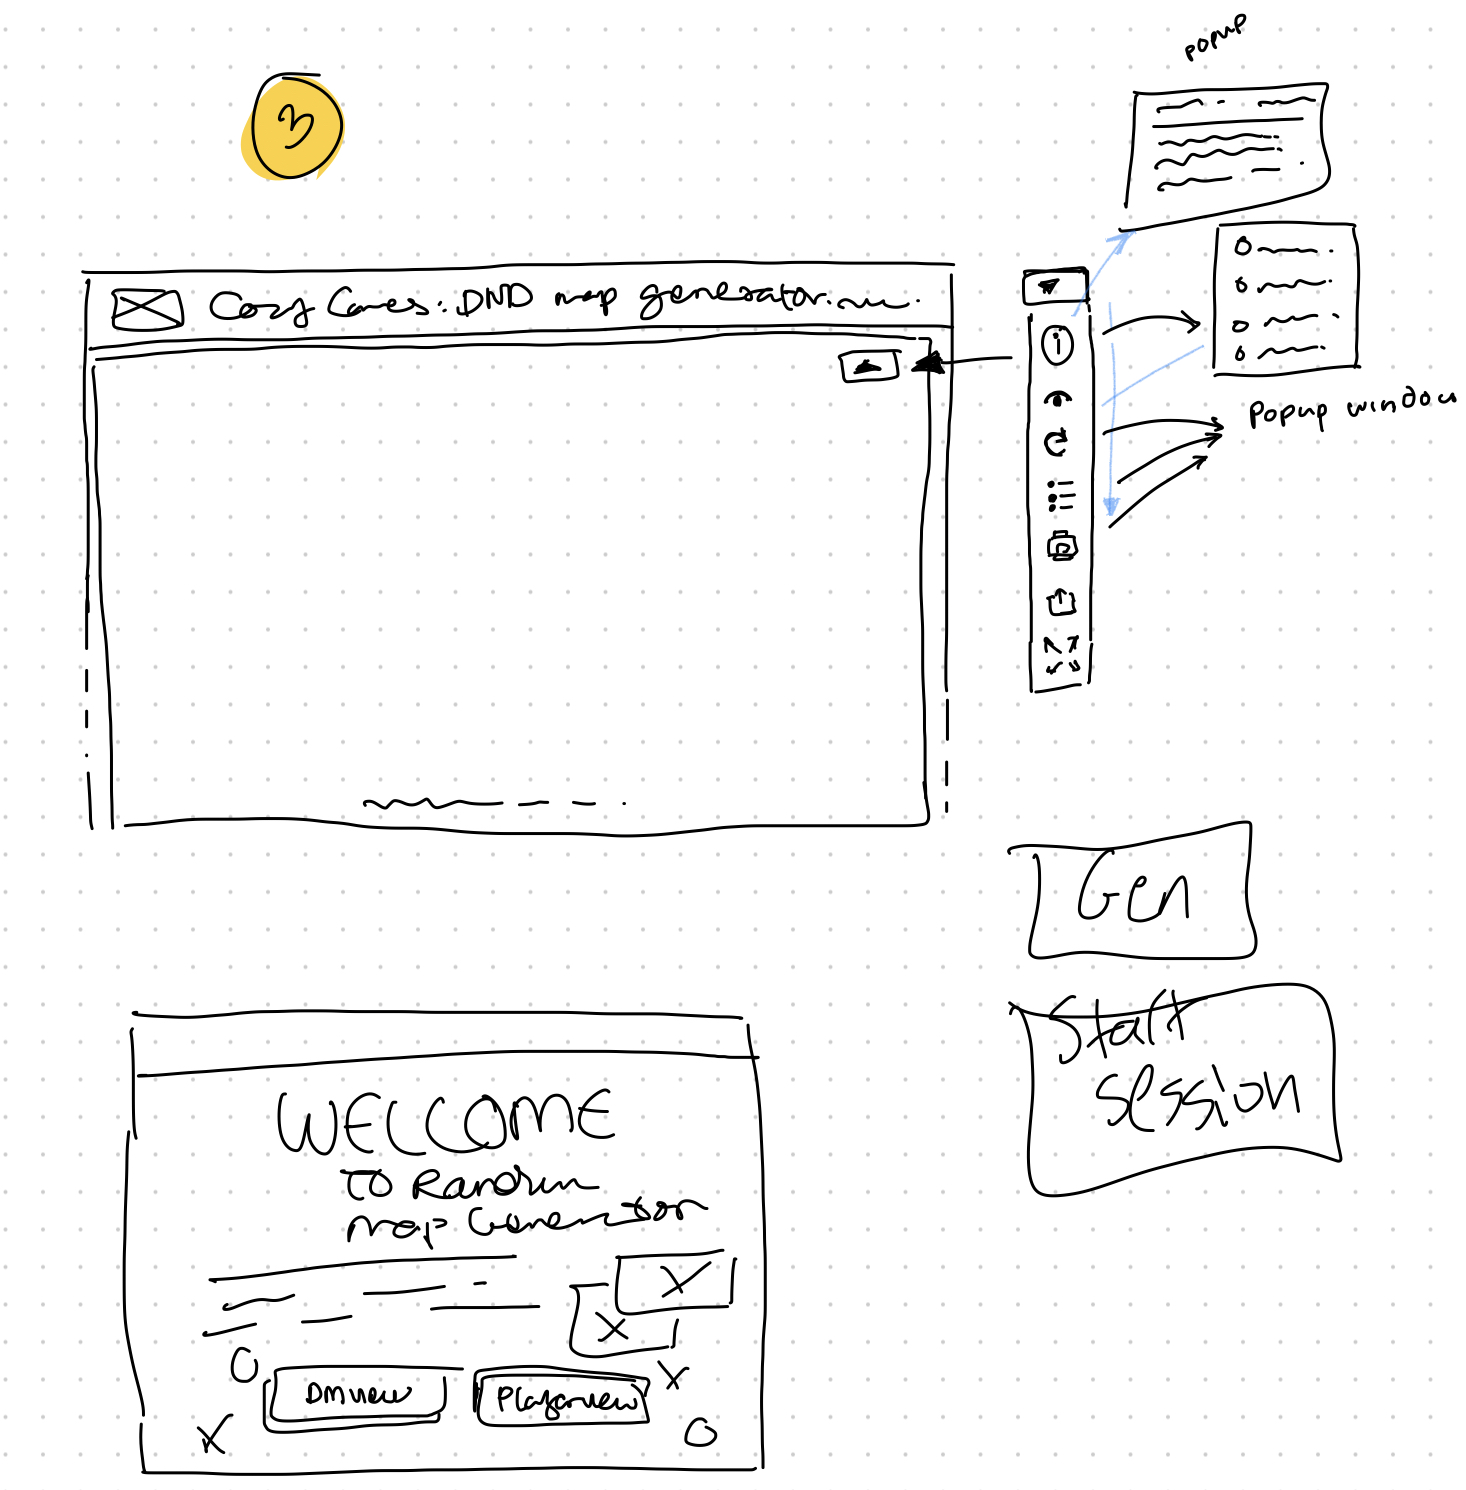 popup
3
Cozy Caves: DND map generator
i
Popup window
Gen
Start
session
WELCOME
to Random
map Generator
DM view
Player view